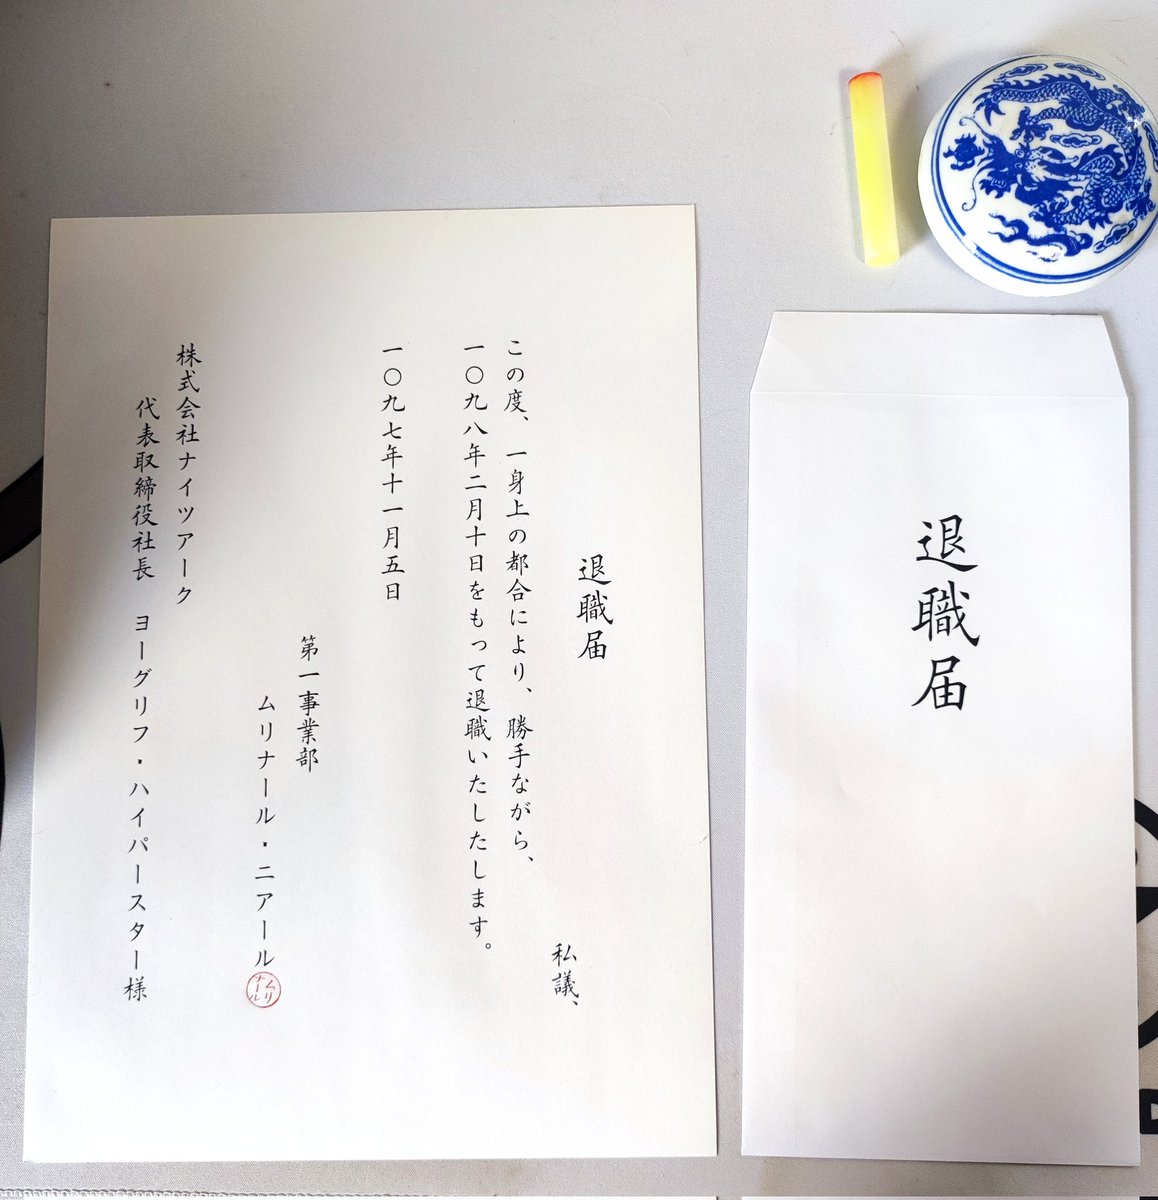 退職届
私議、
この度、一身上の都合により、勝手ながら、
一〇九八年二月十日をもって退職いたしたします。
一〇九七年十一月五日
第一事業部
ムリナール・ニアール
ムリナール
株式会社ナイツアーク
代表取締役社長　ヨーグリフ・ハイパースター様
退職届